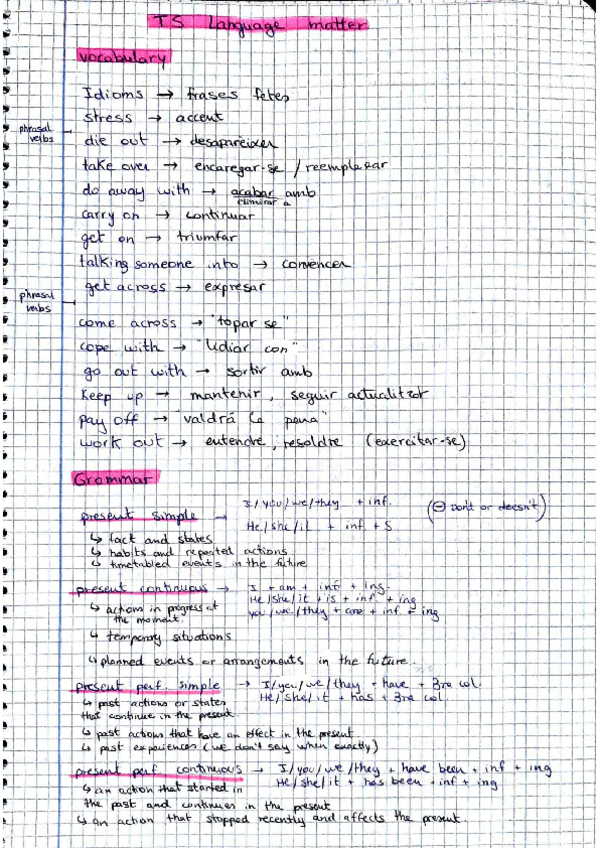 TS Language matter
vocabulary
Idioms → frases fetes
stress → accent
phrasal verbs
die out → desaparèixer
take over → encaregar-se / reemplazar
do away with → acabar amb
eliminar a
carry on → continuar
get on → triumfar
talking someone into → convencer
get across → expresar
phrasal verbs
come across → "topar se"
cope with → "lidiar con"
go out with → sortir amb
Keep up → mantenir, seguir actualitzat
pay off → "valdrá la pena"
work out → entendre, resoldre (exercitar-se)
Grammar
present simple → I/you/we/they + inf. (⊖ Don't or doesn't)
He/she/it + inf. + s
↳ fact and states
↳ habits and repeated actions
↳ timetabled events in the future
present continuous → I + am + inf + ing.
He/she/it + is + inf. + ing
you/we/they + are + inf + ing
↳ actions in progress at
the moment.
↳ temporary situations
↳ planned events or arrangements in the future.
present perf. simple → I/you/we/they + have + 3ra col.
He/she/it + has + 3ra col.
↳ past actions or states
that continue in the present.
↳ past actions that have an effect in the present
↳ past experiences (we don't say when exactly)
present perf continuous → I/you/we/they + have been + inf + ing
He/she/it + has been + inf + ing
↳ an action that started in
the past and continues in the present
↳ an action that stopped recently and affects the present.